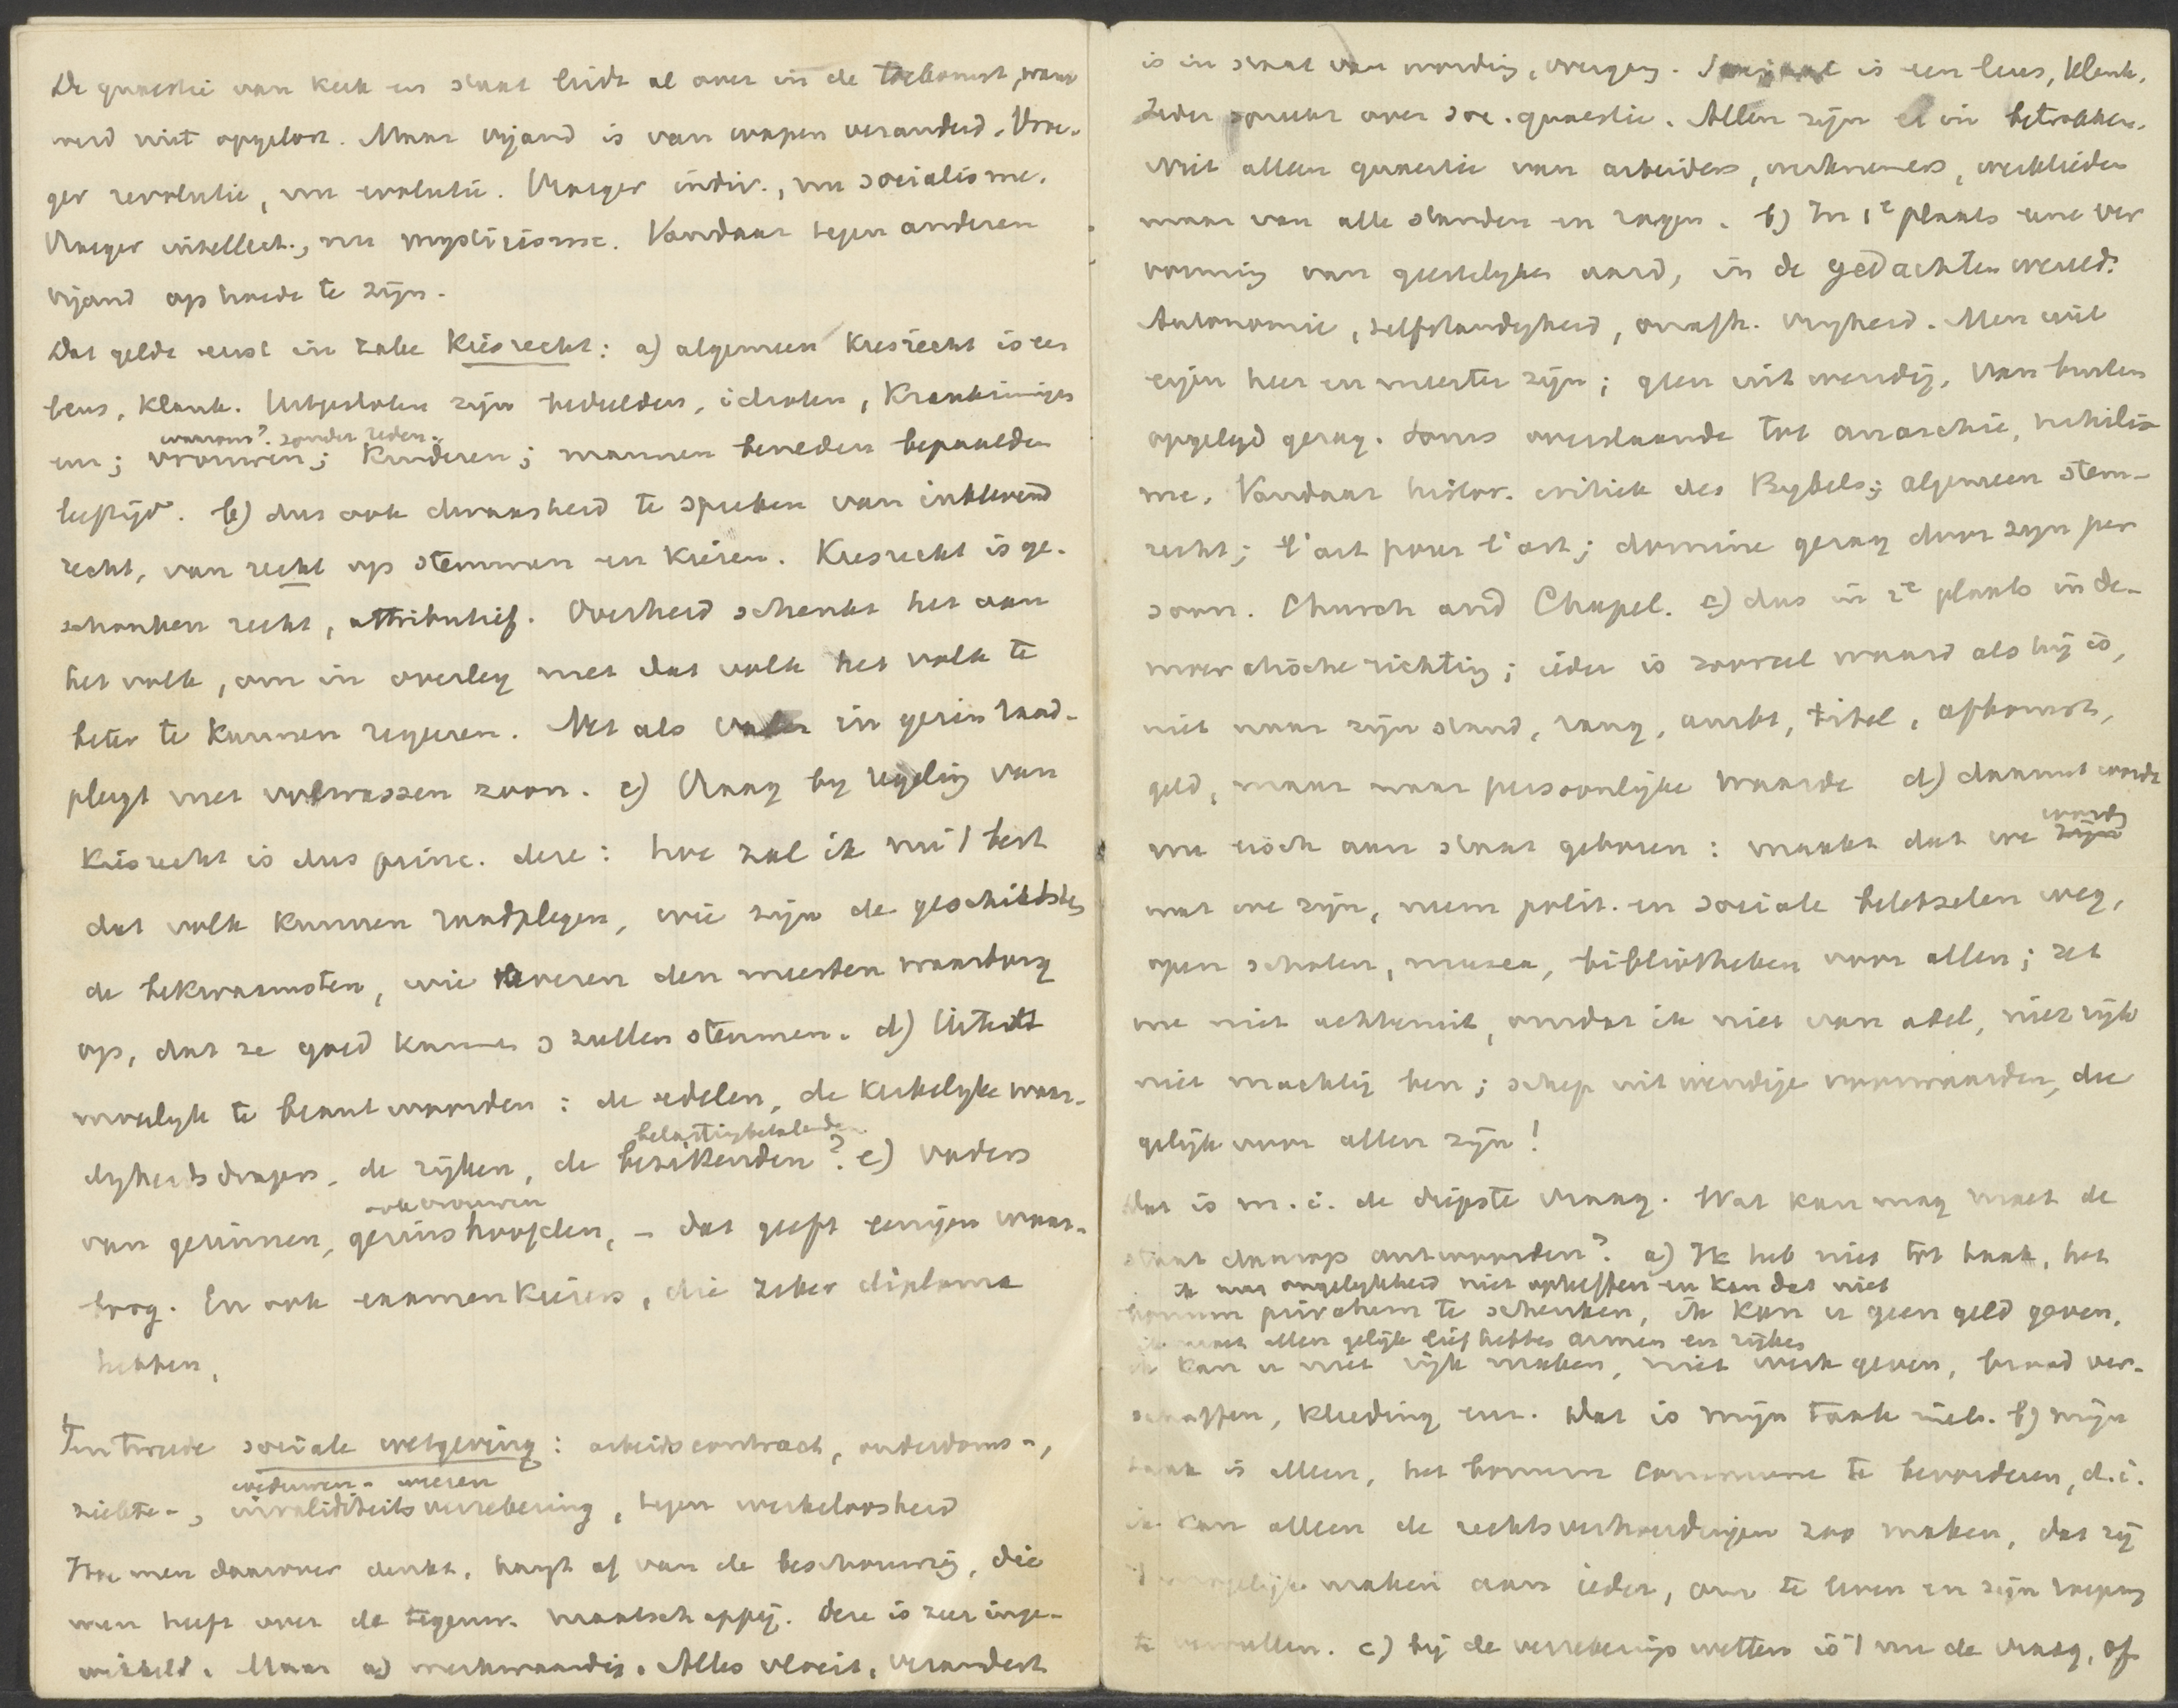 De quaestie van kerk en staat leidt al over in de toekomst, want
werd niet opgelost. Maar vijand is van wapen veranderd. Vroe-
ger revolutie, nu evolutie. Vroeger indiv., nu socialisme.
Vroeger intellect., nu mysticisme. Vandaar tegen anderen
vijand op hoede te zijn.
Dat geldt eerst in zake Kiesrecht: a) algemeen Kiesrecht is een
leus, klank. Uitgesloten zijn bedeelden, idioten, Krankzinnigen
waarom? zonder reden.
enz; vrouwen; Kinderen; mannen beneden bepaalden
leeftijd. b) dus ook dwaasheid te spreken van inklevend
recht, van recht op stemmen en Kiezen. Kiesrecht is ge-
schonken recht, attributief. Overheid schenkt het aan
het volk, om in overleg met dat volk het volk te
beter te kunnen regeeren. Net als vader in gezin raad-
pleegt met volwassen zoon. c) Vraag bij regeling van
Kiesrecht is dus princ. deze: hoe zal ik nu 't best
dat volk kunnen raadplegen, wie zijn de geschiktsten
de bekwaamsten, wie leveren den meesten waarborg
op, dat ze goed kunnen & zullen stemmen. d) Uiterst
moeilijk te beantwoorden: de edelen, de Kerkelijke waar-
belastingbetalenden
digheidsdragers, de rijken, de bezittenden? e) vaders
ook vrouwen
van gezinnen, gezinshoofden, – dat geeft eenigen waar-
borg. En ook examenkiezers, die zeker diploma
hebben.
Ten tweede sociale wetgeving: arbeidscontract, ouderdoms-,
weduwen- weezen
ziekte-, invaliditeitsverzekering, tegen werkeloosheid
Hoe men daarover denkt, hangt af van de beschouwing, die
men heeft over de tegenw. maatschappij. Deze is zeer inge-
wikkeld. Maar a) merkwaardig. Alles vloeit, verandert
is in staat van wording, overgang. Sociaal is een leus, klank.
Ieder spreekt over soc. quaestie. Allen zijn er in betrokken.
Niet alleen quaestie van arbeiders, werknemers, werklieden
maar van alle standen en rangen. b) In 1e plaats eene ver
vorming van geestelijken aard, in de gedachtenwereld:
Autonomie, zelfstandigheid, onafh. vrijheid. Men wil
eigen heer en meester zijn; geen uitwendig, van buiten
opgelegd gezag. Soms overslaande tot anarchie, nihilis
me. Vandaar histor. critiek des Bijbels; algemeen stem-
recht; l'art pour l'art; dominé gezag door zijn per
soon. Church and Chapel. c) dus in 2e plaats in de-
mocratische richting; ieder is zooveel waard als hij is,
niet naar zijn stand, rang, ambt, titel, afkomst,
geld, maar naar persoonlijke waarde d) daaruit wordt
nu eisch aan staat geboren: maakt dat we zijn
worden
wat we zijn, neem polit. en sociale beletselen weg,
open scholen, musea, bibliotheken voor allen; zet
me niet achteruit, omdat ik niet van adel, niet rijk
niet machtig ben; schep uitwendige voorwaarden, die
gelijk voor allen zijn!
Dat is m.i. de diepste vraag. Wat kan mag moet de
staat daarop antwoorden? a) Ik heb niet tot taak, het
ik mag ongelijkheid niet opheffen en kan dat niet
bonum privatum te schenken, ik kan u geen geld geven,
ik moet allen gelijk liefhebben armen en rijken
ik kan u niet rijk maken, niet werk geven, brood ver-
schaffen, kleeding enz. Dat is mijn taak niet. b) mijn
taak is alleen, het bonum commune te bevorderen, d.i.
ik kan alleen de rechtsverhoudingen zoo maken, dat zij
't mogelijk maken aan ieder, om te leven en zijn roeping
te vervullen. c) bij de verzekeringswetten is 't nu de vraag, of